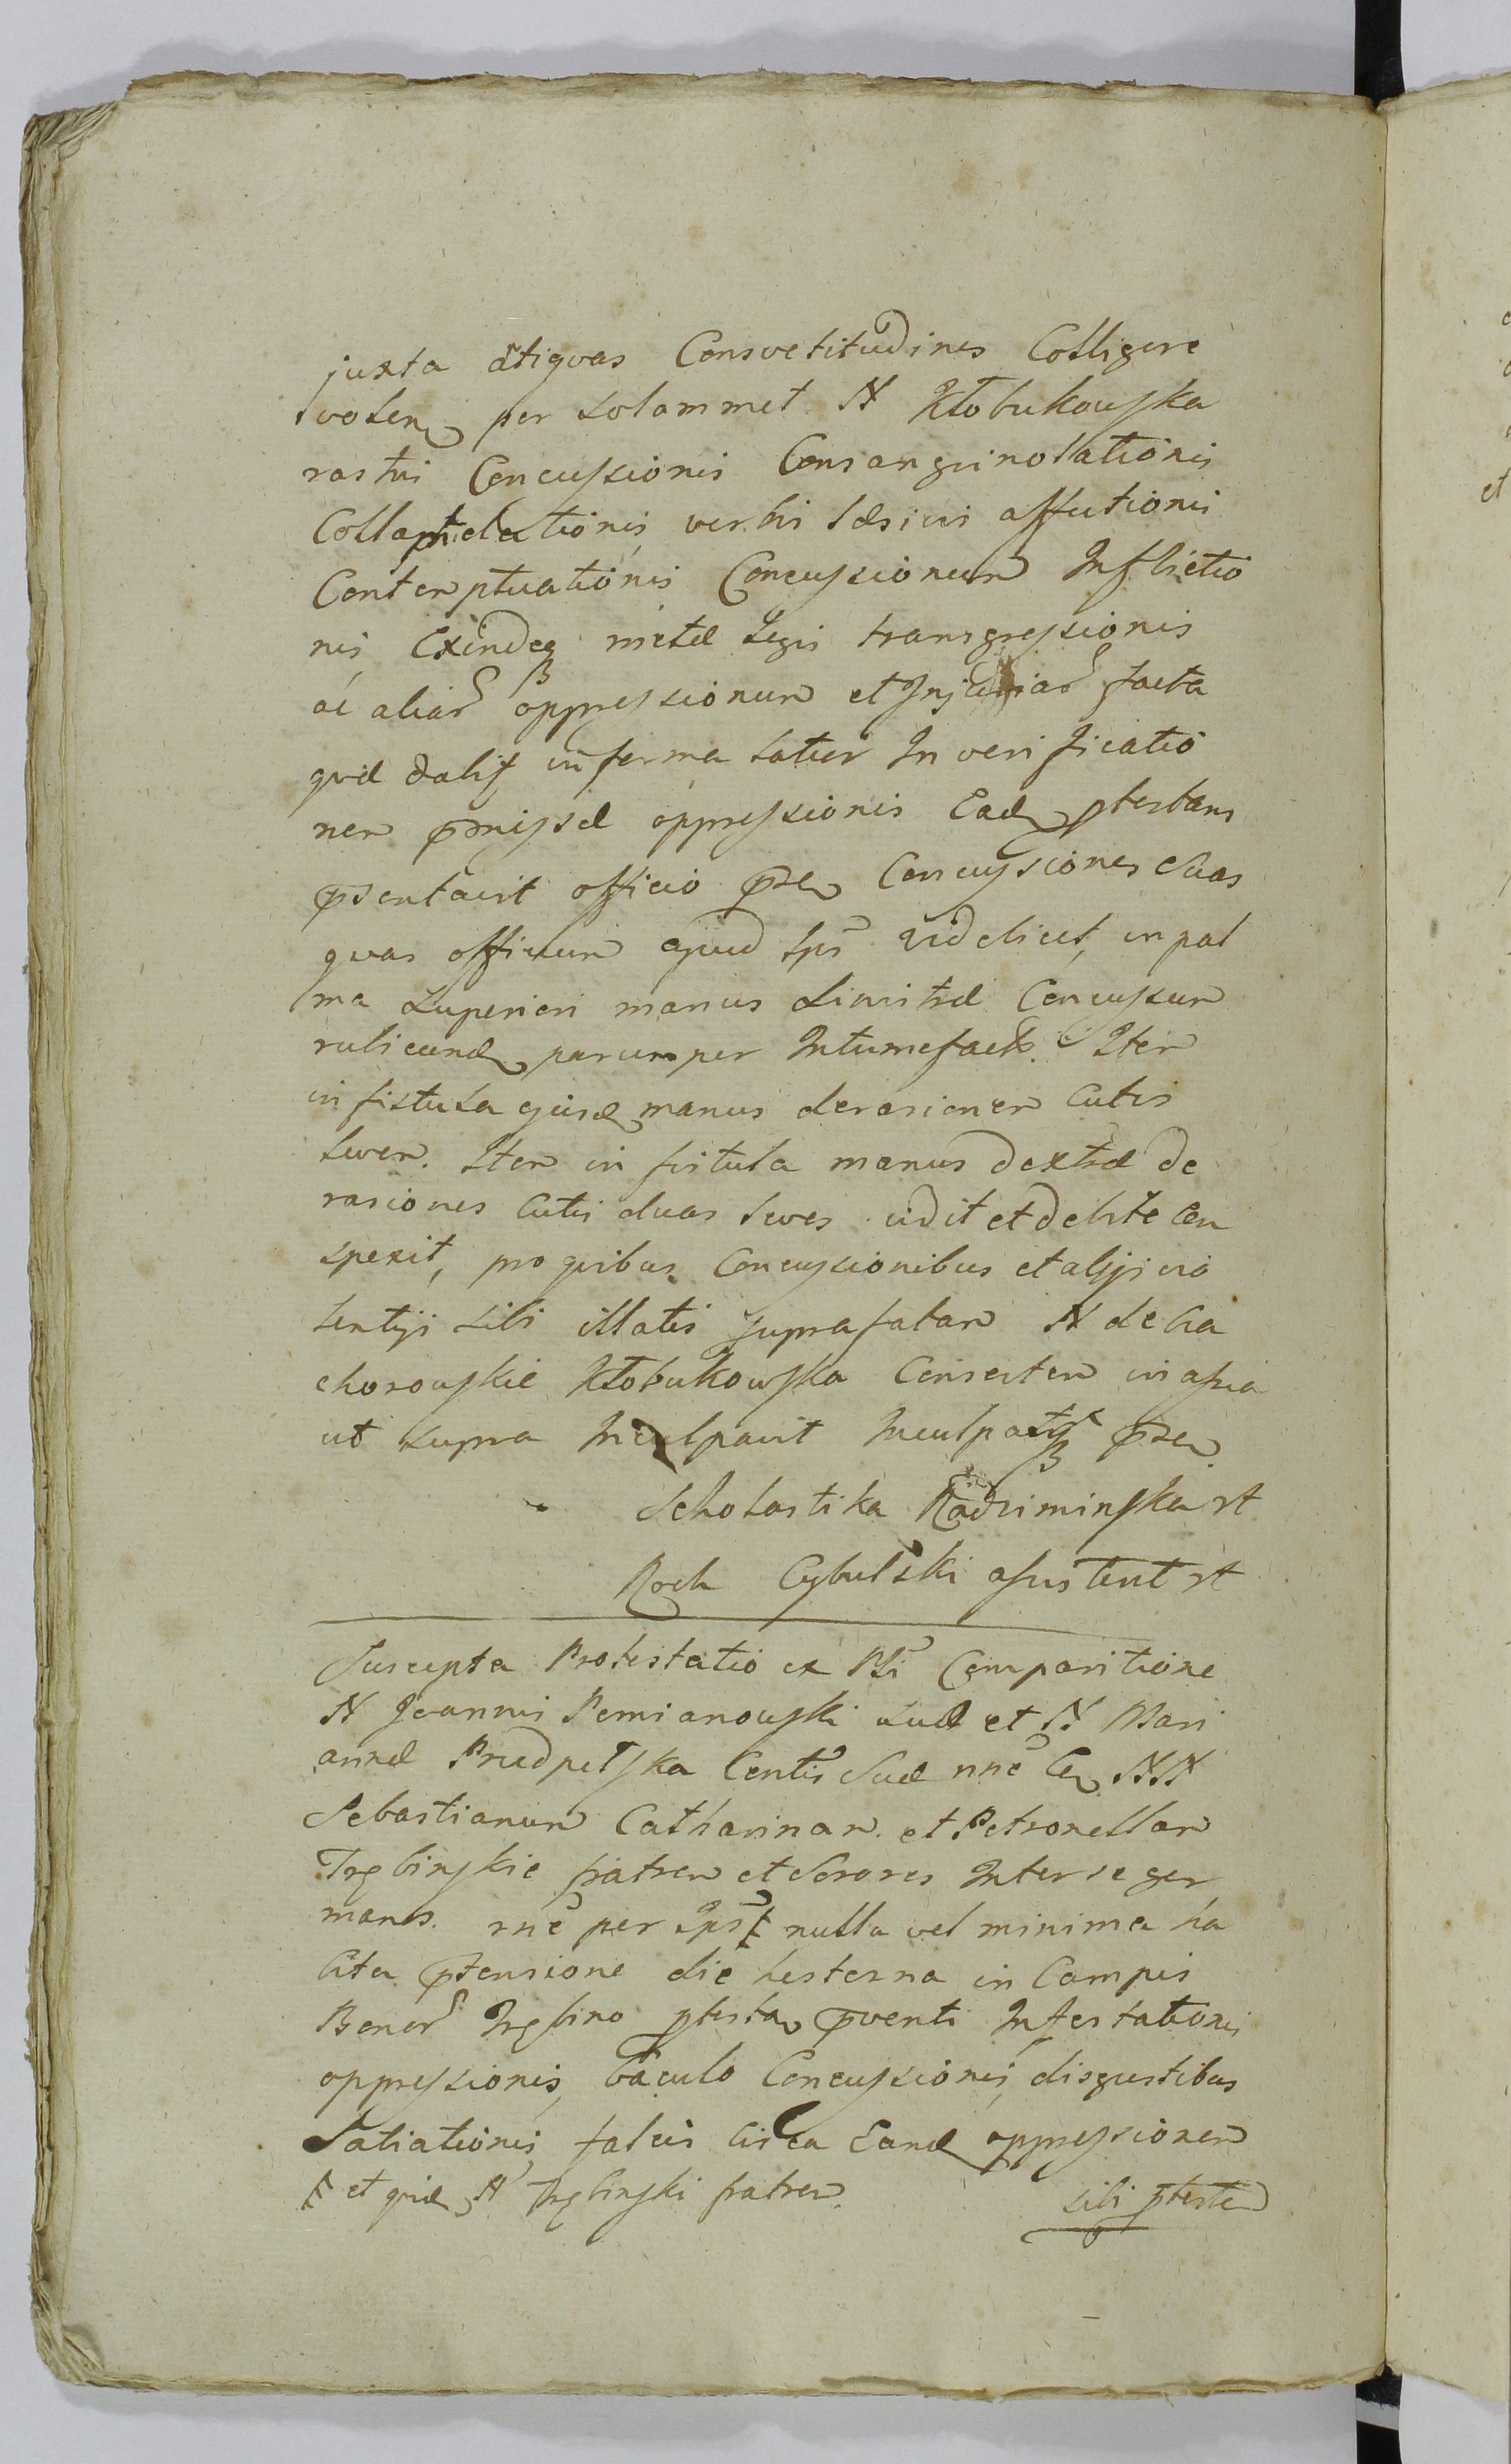 juxta atiqvas Consvetitudines Colligere
volen per solammet N Kłobukowska
rastri Concussionis Consangvinolationis
verbis læsivis affutionis
Contemptuationis Concussionum Inflictio
nis Exindeq metæ Legis transgressionis
ac aliar oppressionum et Injuriar facta
qvæ talis in forma latior In verificatio
nem pmissæ oppressionis Ead ptestans
psentavit officio pse Concussiones Suas
qvas officium apud Ips videlicet, in pal
ma superiori manus sinistræ Concussum
rubicund parumper Intumefact. Item
in fistula ejusd manus derasionem Cutis
levem. Item in fistula manus dextræ de
rasiones Cutis duas leves vidit et debite Con
spexit, pro qvibus Concussionibus et alijs vio
lentijs sibi illatis suprafatam N de Cia
chorowskie Kłobukowska Consortem in assia
ut supra Inculpavit Inculpatq pse
Scholastika Radziminska rt
Roch Cybulski assistent rt
Suscepta Protestatio ex Pli Comparitione
N Joannis Pemianowski suæ et N Mari
annæ Prudpelska Contis Suæ nne Co NN
Sebastianum Catharinam et Petronellam
Trębinskie fratrem et Sorores Inter se ger
manos. rne per Ips nulla vel minima ha
bita ptensione die hesterna in Campis
Bonor Trębino ptestan pventi Infestationis
oppressionis, baculo Concussionis, disgustibus
Satiationis, falcis circa Eand oppressionem
et qvid N Trębinski fratrem. sibi pteste